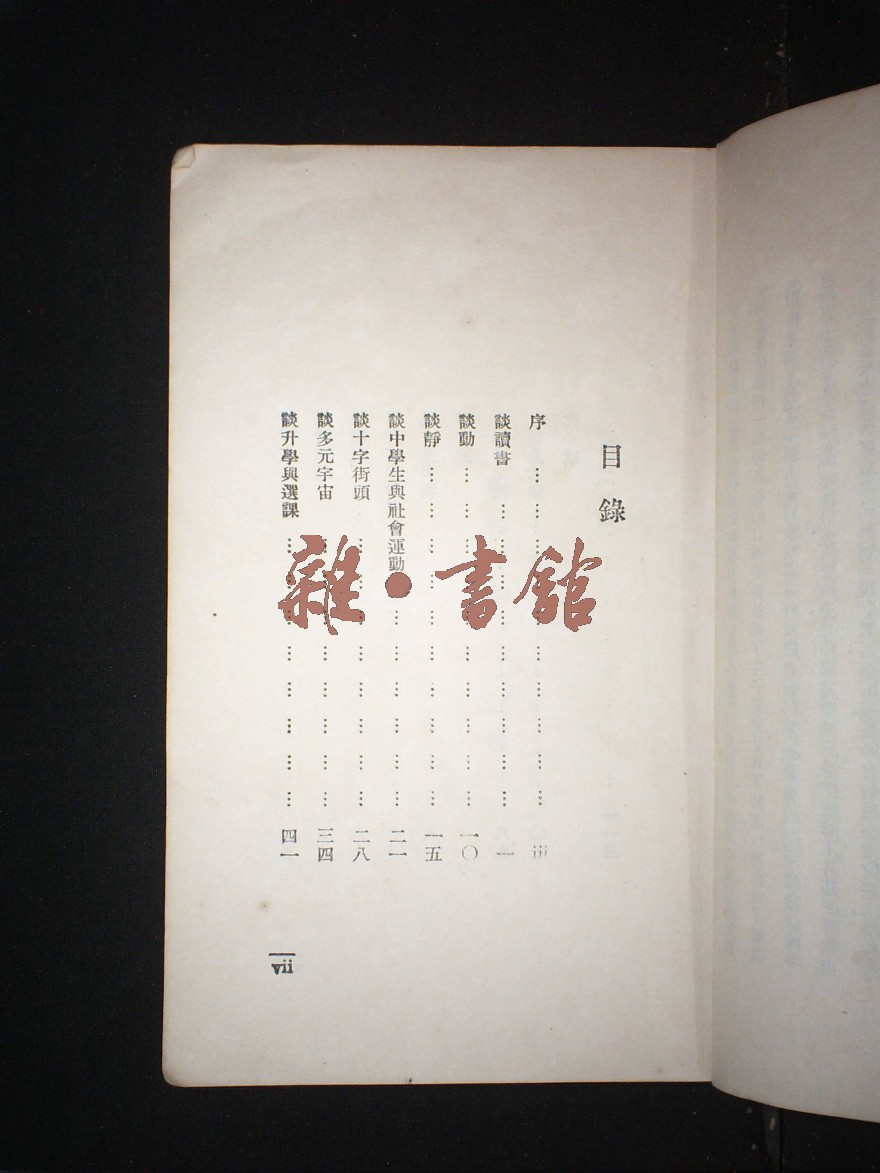 目錄
序 … … … … … … … … … … iii
談讀書 … … … … … … … … … 一
談動 … … … … … … … … … … 一〇
談靜 … … … … … … … … … … 一五
談中學生與社會運動 … … … … … … 二一
談十字街頭 … … … … … … … … 二八
談多元宇宙 … … … … … … … … 三四
談升學與選課 … … … … … … … … 四一
vii
雜·書館